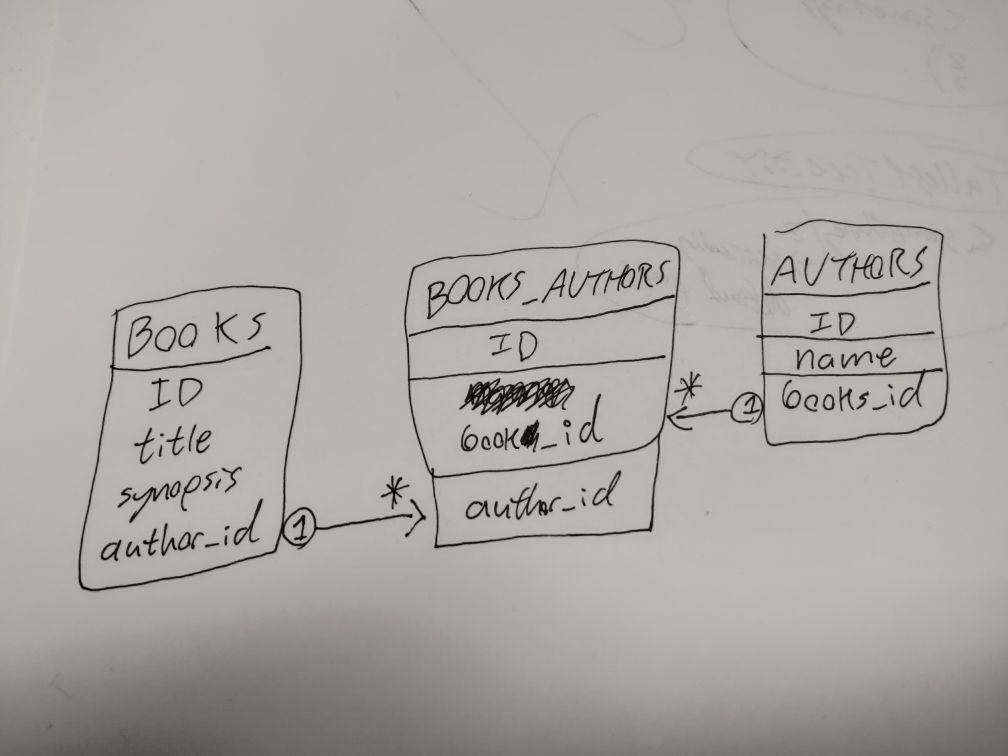 BOOKS
ID
title
synopsis
author_id
1
*
BOOKS_AUTHORS
ID
book_id
author_id
*
1
AUTHORS
ID
name
books_id